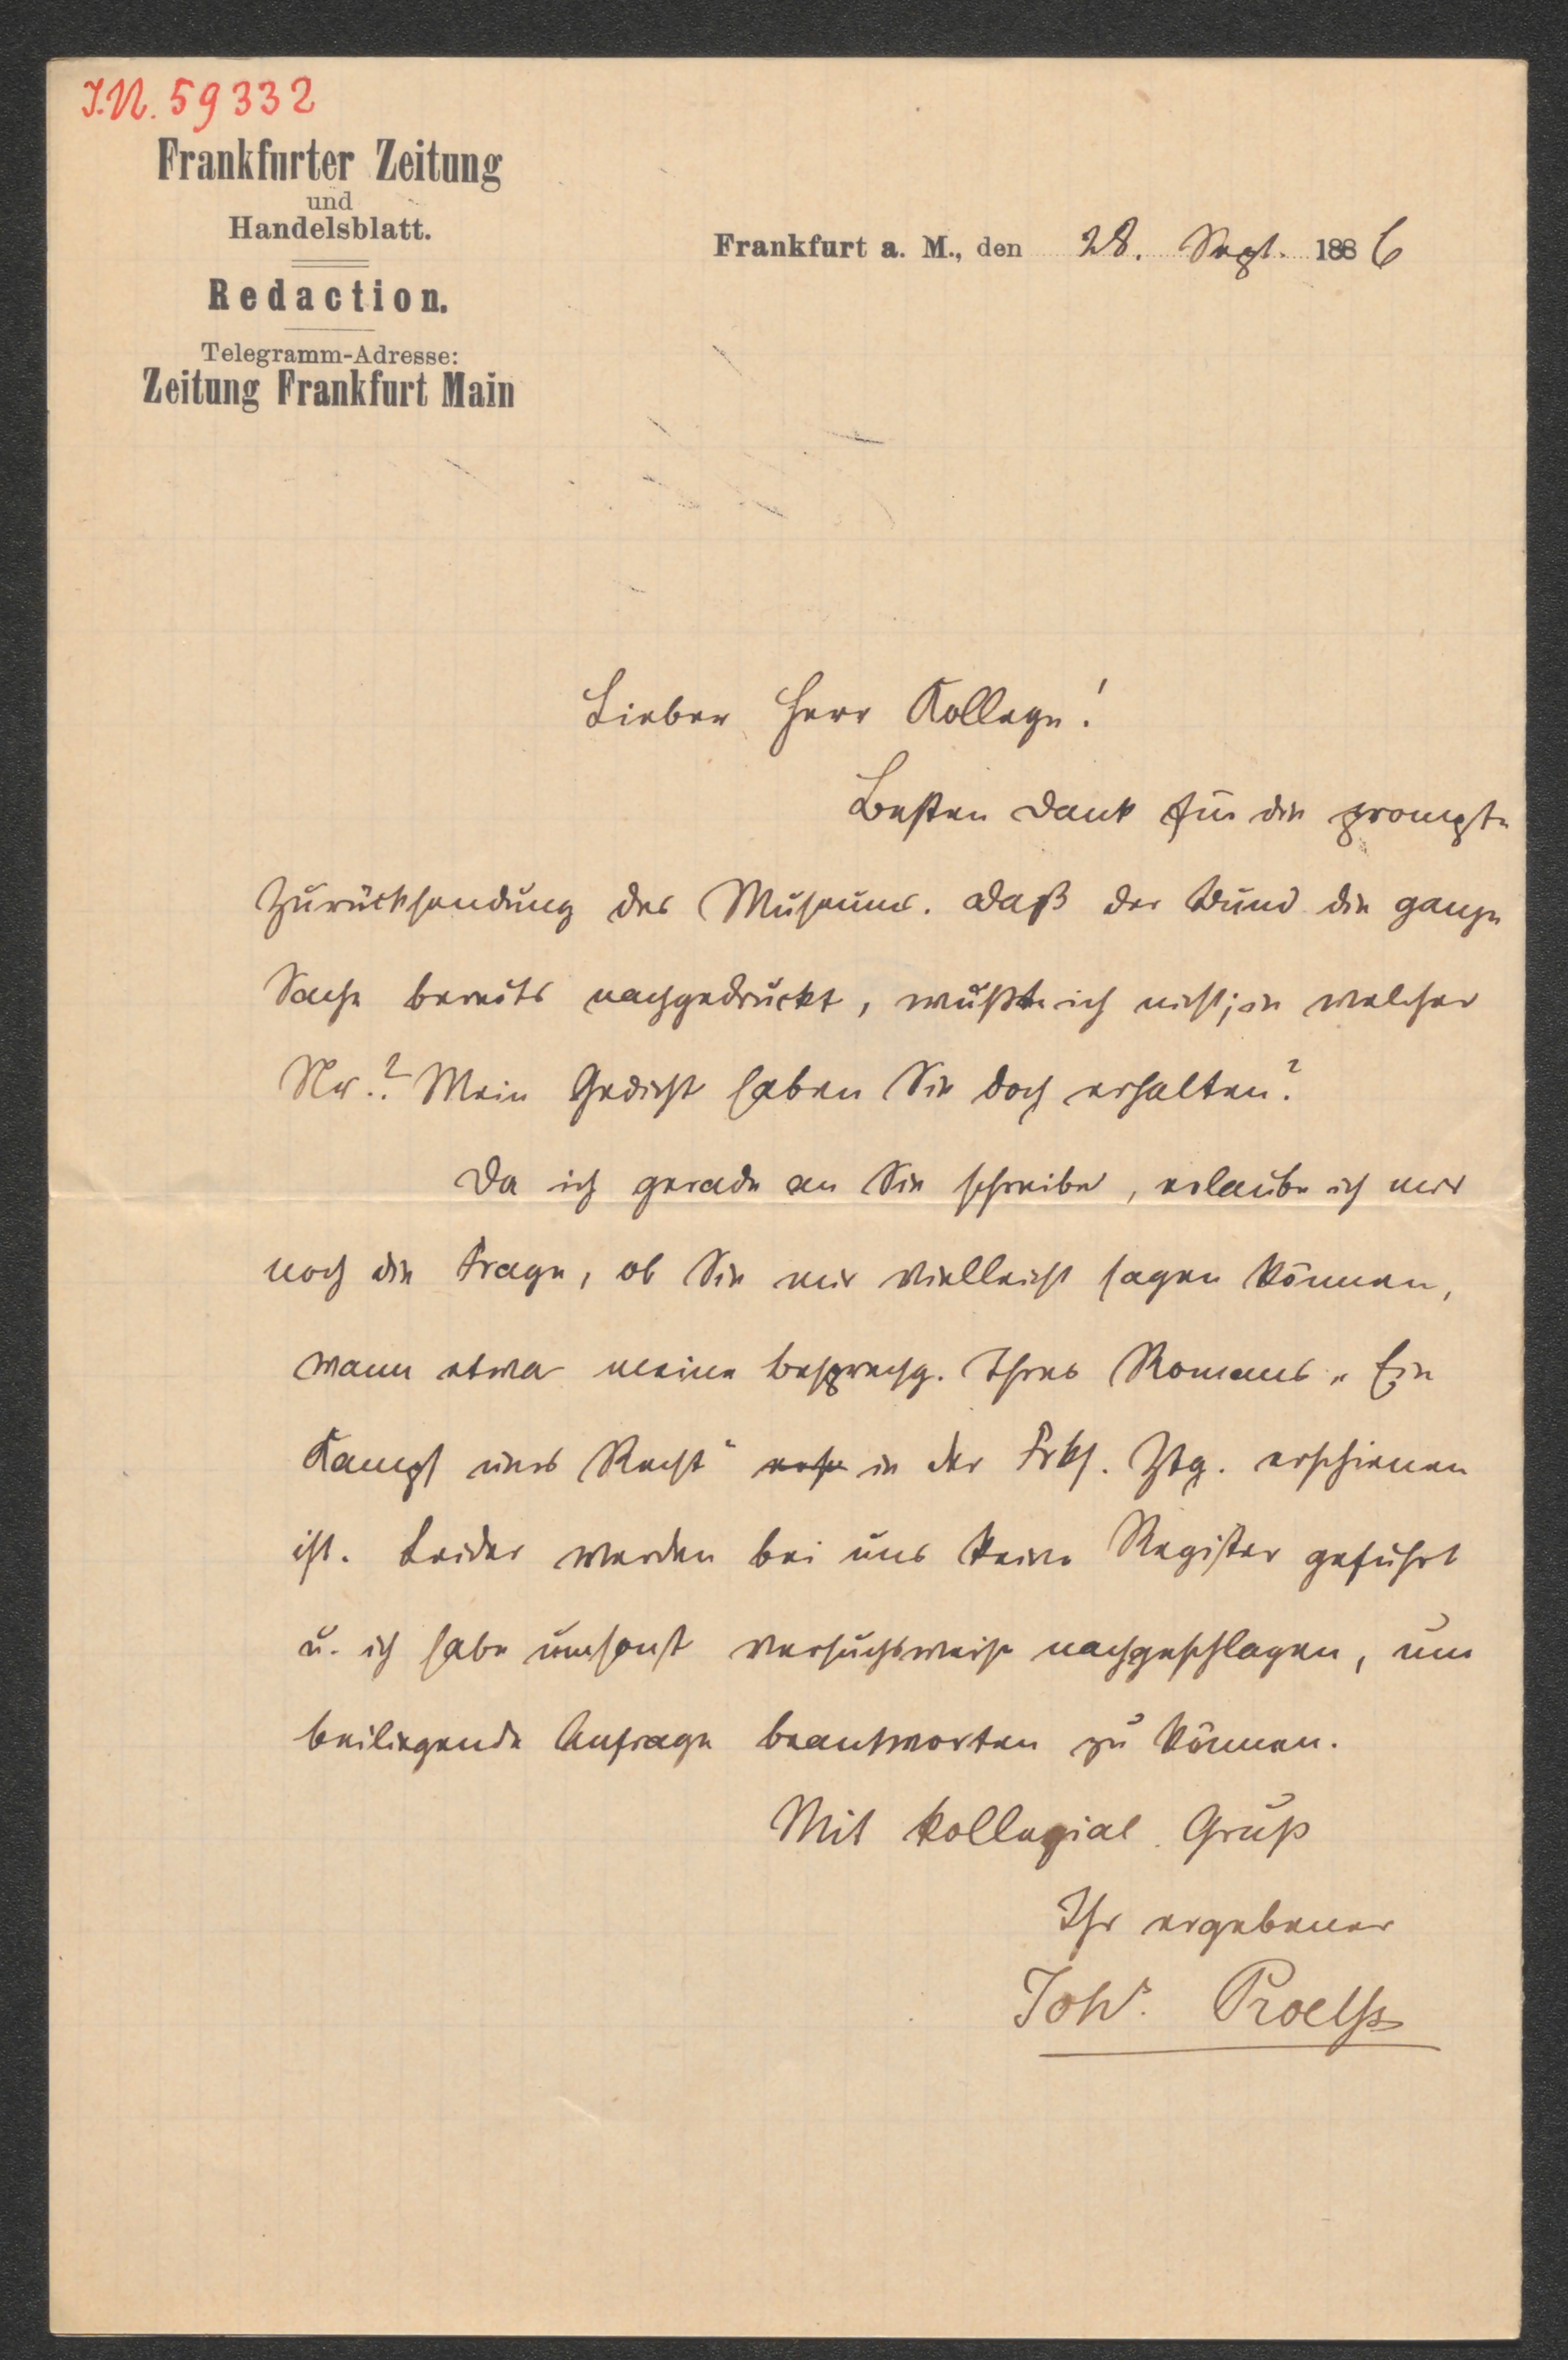 I.N. 59332
Frankfurter Zeitung
und
Handelsblatt.
Redaction.
Telegramm-Adresse:
Zeitung Frankfurt Main
Frankfurt a. M., den 28. Sept. 1886
Lieber Herr Kollege!
Besten Dank für die prompte
Zurücksendung des Museums. Daß der Bund die ganze
Sache bereits nachgedruckt, wußte ich nicht; in welcher
Nr.? Mein Gedicht haben Sie doch erhalten?
Da ich gerade an Sie schreibe, erlaube ich mir
noch die Frage, ob Sie mir vielleicht sagen können,
wann etwa meine Besprechg. Ihres Romans „Ein
Kampf ums Recht“ in der Frkf. Ztg. erschienen
ist. Leider werden bei uns keine Register geführt
u. ich habe umsonst versuchsweise nachgeschlagen, um
beiliegende Anfrage beantworten zu können.
Mit kollegial. Gruß
Ihr ergebener
Johs. Proelß